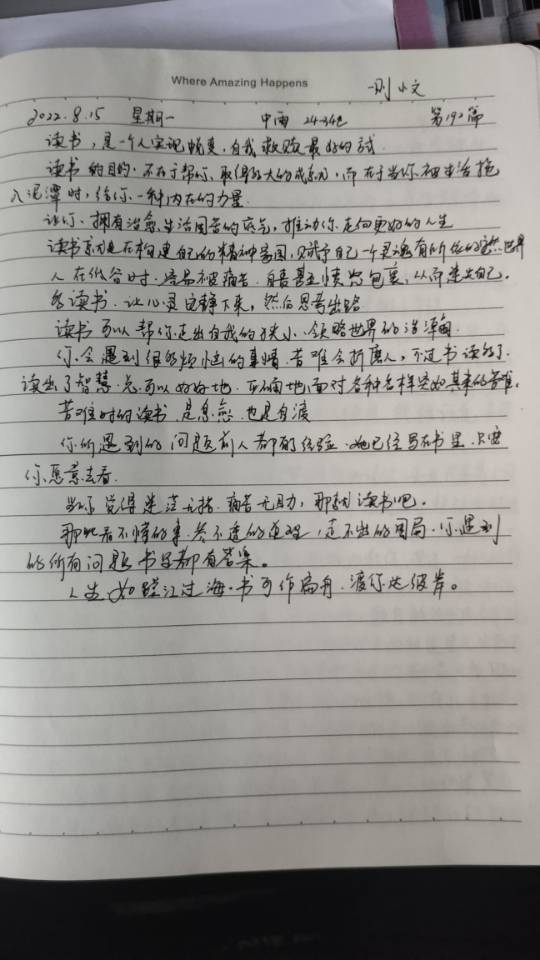 Where Amazing Happens
刘小文
2022.8.15 星期一 中雨 24-34℃ 第192篇
读书,是一个人实现蜕变,自我救赎最好的
读书的目的,不在于帮你取得多大的成就,而在于当你被生活拖
入泥潭时,给你一种内在的力量.
让你,拥有治愈生活困苦的底气,推动你走向更好的人生
读书 就是在构建自己的精神家园,赋予自己一个灵魂有所依的 世界
人在低谷时.容易被痛苦.自 等 情绪包裹,从而迷失自己。
多读书.让心灵安静下来,然后思考出路
读书可以帮你走出自我的狭小.领略世界的
你会遇到很多烦恼的事情.苦难会折磨人,不过书读多了.
读出了智慧.总可以好好地.正确地面对各种各样突如其来的苦难.
苦难时的读书.是 .也是自渡
你所遇到的问题前人都有经验.她已经写在书里.只要
你愿意去看.
当你觉得迷茫无措.痛苦无助,那就读书吧。
那些看不懂的事.参不透的道理,走不出的困局.你遇到
的所有问题书里都有答案。
人生如蹚江过海.书可作扁舟.渡你达彼岸。